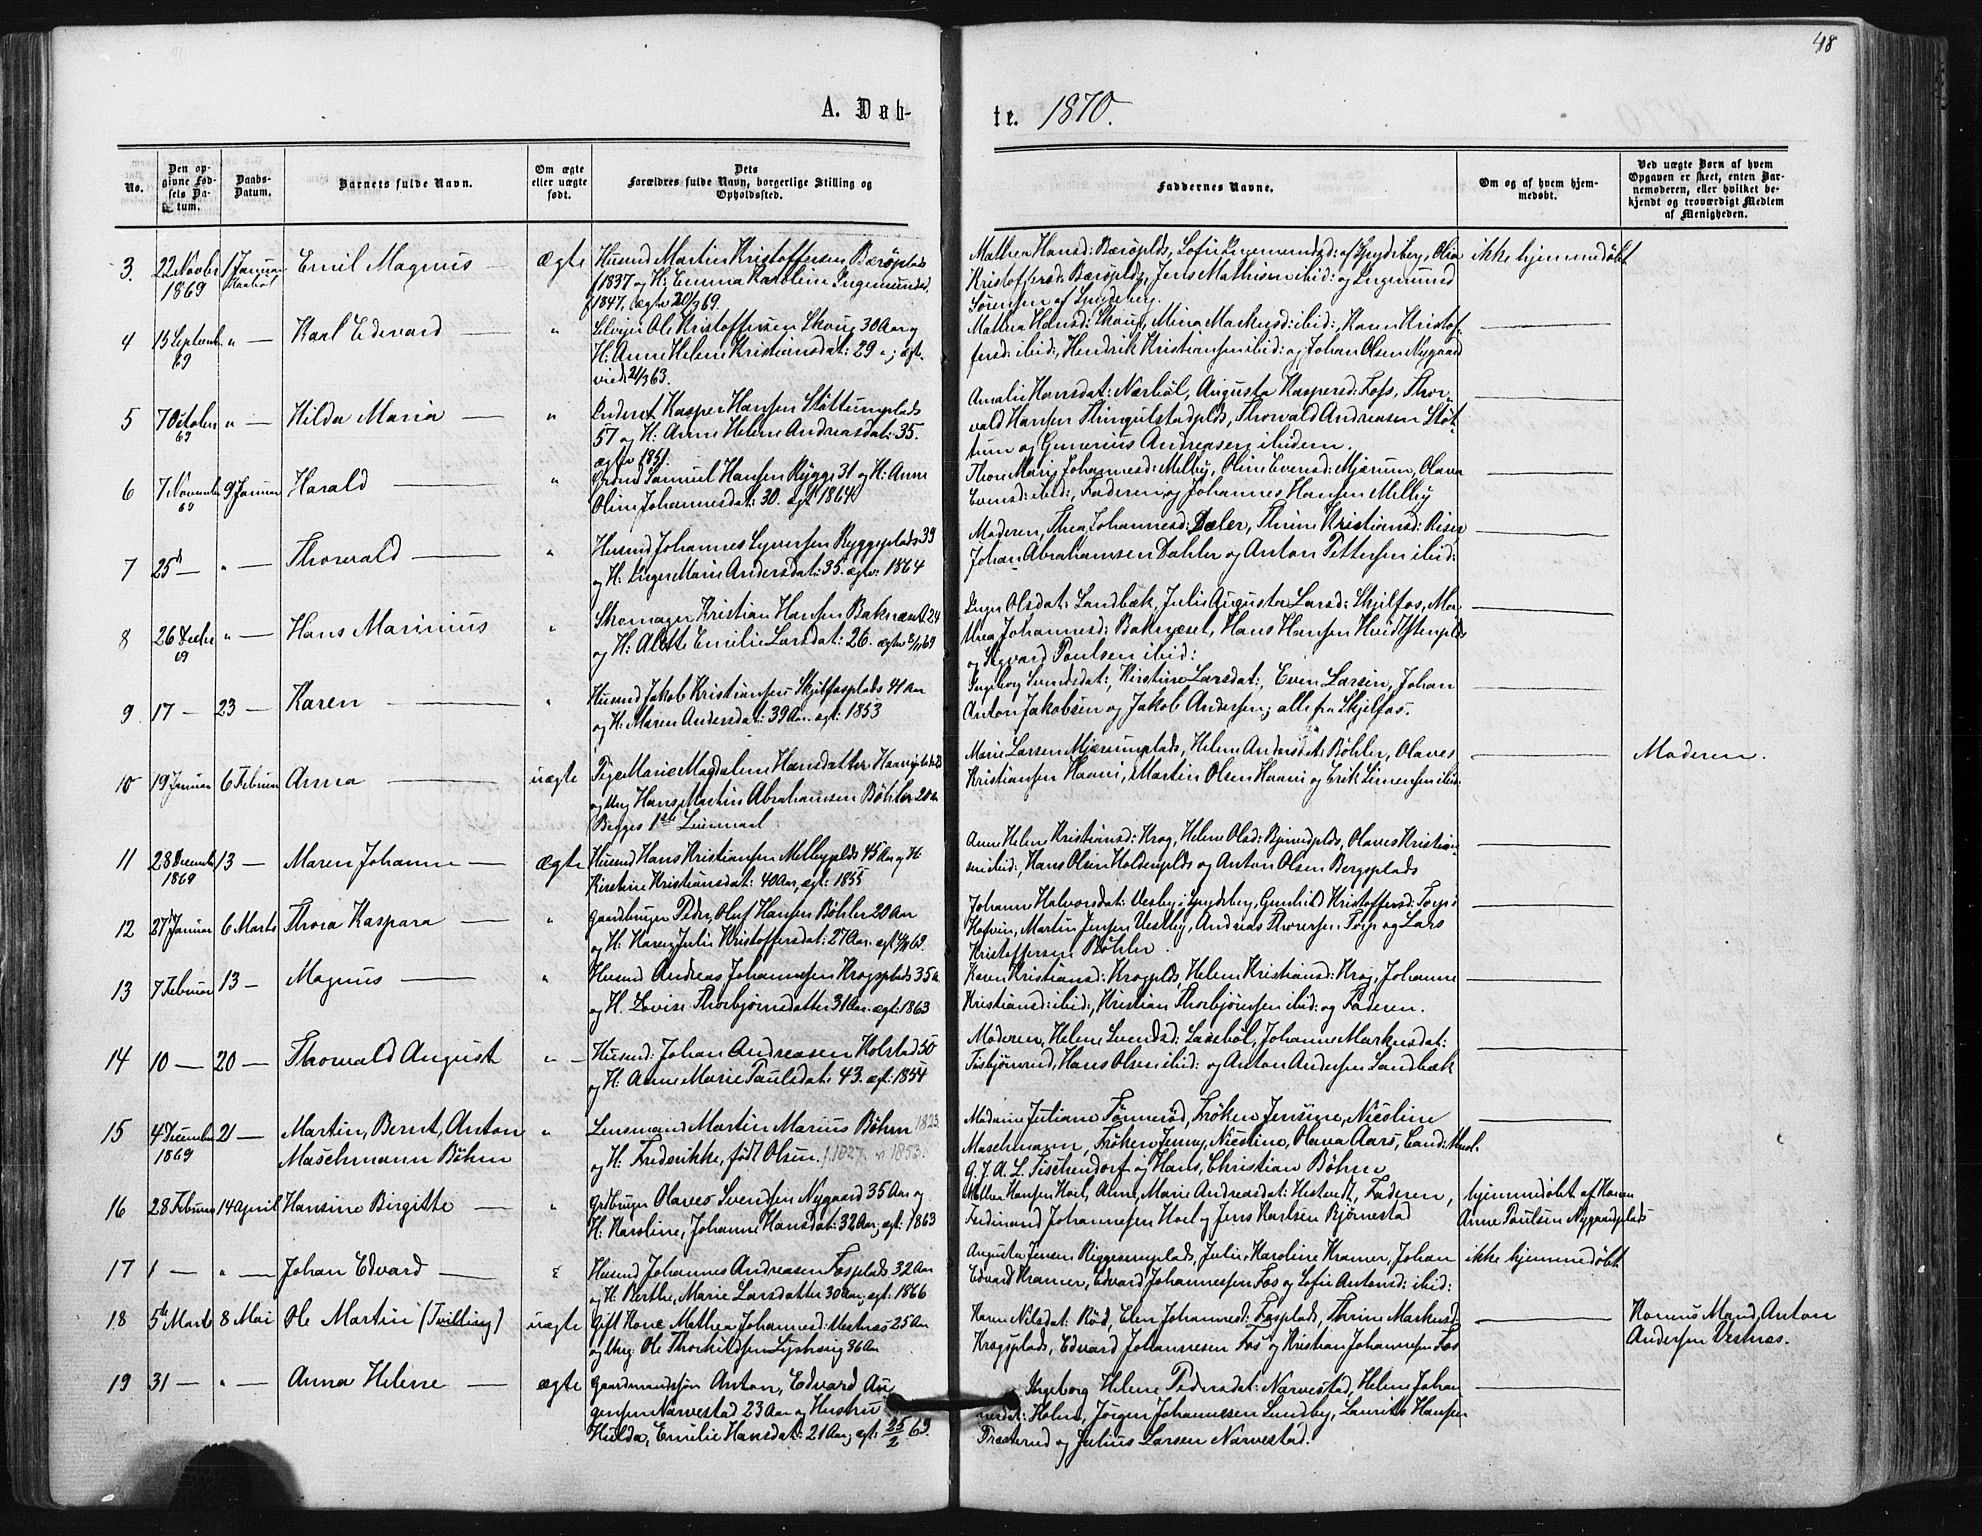 48
A. Døb-
te. 1870.
No.
Den op-
givne Fød-
sels Da-
tum.
Daabs-
Datum.
Barnets fulde Navn.
Om ægte
eller uægte
født.
Dets
Forældres fulde Navn, borgerlige Stilling og
Opholdssted.
Faddernes Navne.
Om og af hvem hjem-
medøbt.
Ved uægte Børn af hvem
Opgaven er skeet, enten Bar-
nemoderen, eller hvilket be-
kjendt og troværdigt Medlem
af Menigheden.
3. 22 Novbr 1869 1 Januar Emil Magnus ægte
Husmd Martin Kristoffersen Bærøplads
f 1837 og H: Emma Karoline Ingemundsd.
f 1847, ægtv 20/3 69.
Mathea Hansd: Bærøplds, Sofie Ingemundsd: af Spydeberg, Olia
Kristoffersd: Bærøplds, Jens Mathisen ibid: og Ingemund
Sørensen af Spydeberg.
ikke hjemmedøbt
4 15 Septembr 69 " — Karl Edevard — "
Selveier Ole Kristoffersen Skoug 30 Aar og
H: Anne Helene Kristiansdat: 29 "; ægt-
viede 21/3 63.
Mathea Hansd: Skoug, Mina Markusd: ibid:, Karen Kristof-
fersd: ibid:, Hendrik Kristiansen ibid: og Johan Olsen Nygaard
5 7 October 69 " — Hilda Maria — "
Inderst Kasper Hansen Støttumplads
57 og H: Anne Helene Andreasdat: 35.
ægtv 1851.
Amalie Hansdat: Nærbøl, Augusta Kaspersd: Fos, Thor-
vald Hansen Thingulstadplds, Thorvald Andreasen Støt-
tum og Gunerius Andreasen ibidem.
6 7 November 69 9 Januar Harald — "
Grdmd Samuel Hansen Rygge 31 og H: Anne
Oline Johannesdat: 30. ægt 1864
Thore Marie Johannesd: Melby, Oline Evensd: Mjærum, Olava
Evensd: ibid:, Faderen og Johannes Hansen Melby
7 25d — " — Thorvald — "
Husmd Johannes Syversen Ryggeplads 39
og H: Inger Marie Andersdat: 35. ægtv: 1864
Moderen, Thea Johannesd: Dæler, Thrine Kristiansd: Riser
Johan Abrahamsen Dahler og Anton Pettersen ibid:
8 26 Decbr 69 " — Hans Marinius "
Skomager Kristian Hansen Baknæset 24
og H: Alette Emilie Larsdat: 26. ægtv
Inger Olsdat: Sandbæk, Julie Augusta Larsd: Skjelfos, Mar-
thea Johannesd: Baknæset, Hans Hansen
og Sigvard Poulsen ibid:
9 17 — 23 — Karen — "
Husmd Jakob Kristiansen Skjelfosplads 41 Aar
og H: Maren Andersdat: 39 Aar. ægt: 1853
Ingeborg Svendsdat:, Kirstine Larsdat:, Even Larsen, Johan
Anton Jakobsen og Jakob Andersen; alle fra Skjelfos.
10 19 Januar 6 Februar Anna — uægte
Pige Marie Magdalene Hansdatter
og Ung. Hans Martin Abrahamsen Bøhler 20 Aar
Begges 1ste Leiermaal
Marie Larsen Mjærumplads, Helene Andersdt: Bøhler, Olaves
Kristiansen Haavi, Martin Olsen Haavi og Erik Simensen ibid:
Moderen.
11 28 Decembr 1869 13 — Maren Johanne — ægte
Husmd Hans Kristiansen Melbyplds 45 Aar og H:
Kirstine Kristiansdat: 40 Aar, ægt: 1855
Anne Helene Kristiansd: Krog, Helene Olsd: Bjerudplds, Olaves Kristian-
sen ibid:, Hans Olsen Holdenplds og Anton Olsen Bergsplads
12 27d Januar 6 Marts Thora Kaspara — "
Gaardbruger Peder Oluf Hansen Bøhler 20 Aar
og H: Karen Julie Kristoffersdat: 27 Aar. ægt 69.
Johanne Halvorsdat: Vesby i Spydeberg, Gunhild Kristoffersd: Torp i
Hofvin, Martin Jensen Vestby, Andreas Thoresen Torp og Lars
Kristoffersen Bøhler.
13 7 Februar 13 — Magnus — "
Husmd Andreas Johannesen Krogsplads 35 Aar
og H. Lovise Thorbjørnsdatter 31 Aar. ægt: 1863
Karen Kristiansd: Krogplds, Helene Kristiansd: Krog, Johanne
Kristiansd: ibid:, Kristian Thorbjørnsen ibid: og Faderen.
14 10 — 20 — Thorvald August " —
Husmd: Johan Andreasen Holstad 50
og H: Anne Marie Paulsdat: 43. ægt: 1854
Moderen, Helene Svendsd: Lasebøl, Johanne Markusdat:
Hans Olsen ibid: og Anton Andersen Sandbæk
15 4 December 1869 21 — Martin, Bernt, Anton "
Maschmann Bøhm
Lensmand Martin Marius Bøhm 1825.
og H: Frederikke, født Olsen f. 1827. v 1853.
Madame Juliane Tønnerød, Frøken Jensine, Nicoline
Maschmann, Frøken Jenny, Nicoline, Olava Aars, Cand: theol.
G. J. A. L. Tischendorf og Hans, Christian Bøhm
16 28 Februar 14 April Hansine Birgitte — "
Grdbruger Olaves Svendsen Nygaard 35 Aar og
H: Karoline, Johanne Hansdat: 32 Aar; ægt: 1863
Mathea Hansen Hoel, Anne, Marie Andreasdat: Hestvedt, Faderen,
Ferdinand Johannesen Hoel og Jens Karlsen Bjørnestad
hjemmedøbt af Konen
Anne Paulsen Nygaardplads
17 1 — " — Johan Edvard —
Husmd Johannes Andreasen Fosplads 32 Aar
og H: Berthe, Marie Larsdatter 30 Aar, ægt: 1866
Augusta Jensen Riggesrumplads, Julie Karoline Kramer, Johan
Edvard Kramer, Edvard Johannessen Fos og Sofie Antonsd: ibid:
ikke hjemmedøbt
18 5te Marts 8 Mai Ole Martin (Tvilling) uægte
Gift Kone Mathea Johannesd: Vestnæs 25 Aar
og Ung: Ole Thorkildsen 36 Aar
Karen Nilsdat: Rød, Elen Johannesd: Fosplads, Thrine Markusd:
Krogsplads, Edvard Johannesen Fos og Kristian Johannesen Fos
Konens Mand, Anton
Andersen
19 31 — " — Anna Helene — ægte
Gaardmandssøn Anton, Edvard Au-
gensen Narvestad 23 Aar og Hustru
Hulda, Emilie Hansdat: 21 Aar, ægt: 25/2 69.
Ingeborg Helene Pedersdat: Narvestad, Helene Johan-
nesdat: Holm, Jørgen Johannesen Lundby, Laurits Hansen
Træterud og Julius Larsen Narvestad.